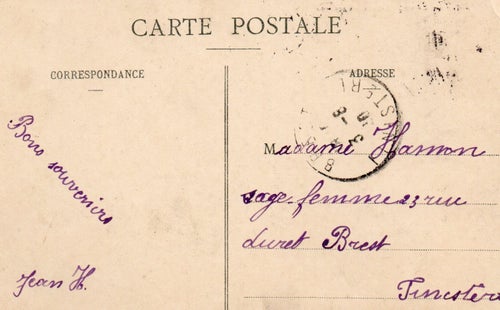 CARTE POSTALE
CORRESPONDANCE
ADRESSE
Bons souvenirs
Jean H.
Madame Hamon
sage-femme 23 rue
duret Brest
Finistère